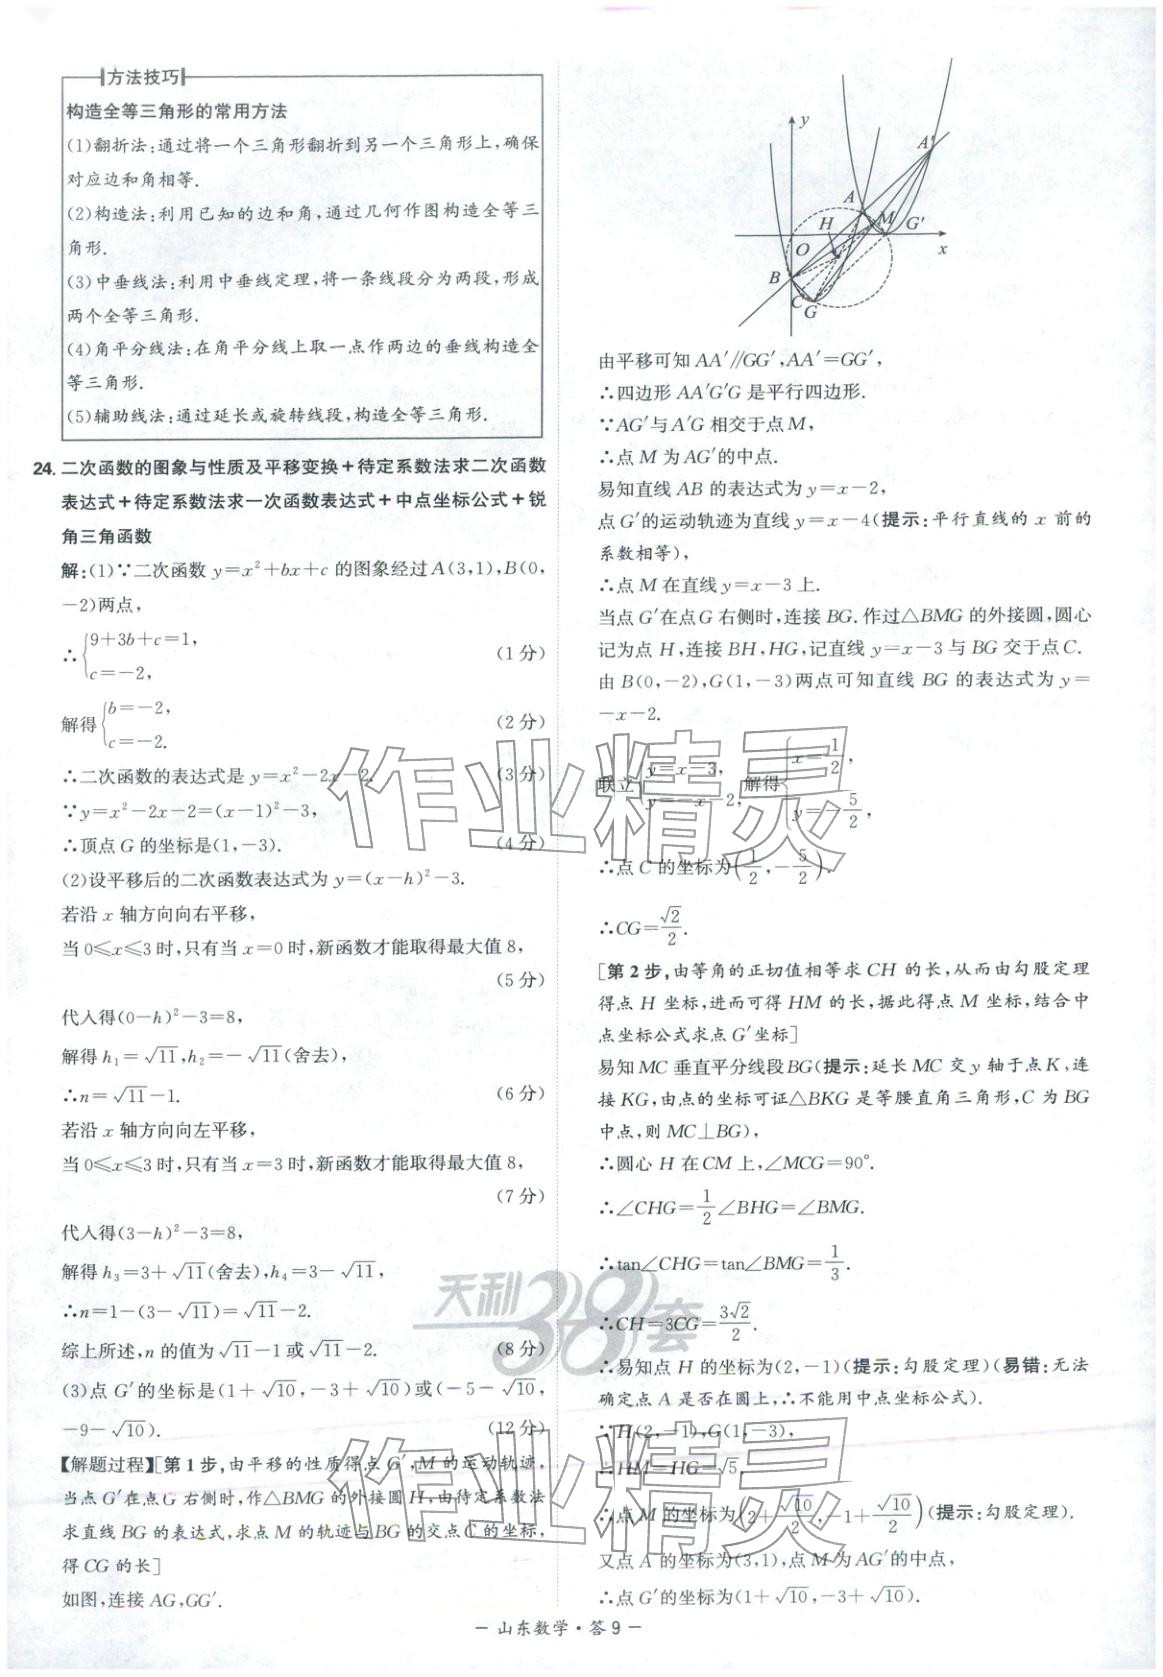 方法技巧
构造全等三角形的常用方法
(1)翻折法:通过将一个三角形翻折到另一个三角形上,确保
对应边和角相等.
(2)构造法:利用已知的边和角,通过几何作图构造全等三
角形.
(3)中垂线法:利用中垂线定理,将一条线段分为两段,形成
两个全等三角形.
(4)角平分线法:在角平分线上取一点作两边的垂线构造全
等三角形.
(5)辅助线法:通过延长或旋转线段,构造全等三角形.
24. 二次函数的图象与性质及平移变换+待定系数法求二次函数
表达式+待定系数法求一次函数表达式+中点坐标公式+锐
角三角函数
解:(1)∵二次函数 y=x²+bx+c 的图象经过 A(3,1),B(0,
-2)两点,
∴{9+3b+c=1,
c=-2, (1 分)
解得{b=-2,
c=-2. (2 分)
∴二次函数的表达式是 y=x²-2x-2. (3 分)
∵y=x²-2x-2=(x-1)²-3,
∴顶点 G 的坐标是(1,-3). (4 分)
(2)设平移后的二次函数表达式为 y=(x-h)²-3.
若沿 x 轴方向向右平移,
当 0≤x≤3 时,只有当 x=0 时,新函数才能取得最大值 8,
(5 分)
代入得(0-h)²-3=8,
解得 h₁=√11,h₂=-√11(舍去),
∴n=√11-1. (6 分)
若沿 x 轴方向向左平移,
当 0≤x≤3 时,只有当 x=3 时,新函数才能取得最大值 8,
(7 分)
代入得(3-h)²-3=8,
解得 h₃=3+√11(舍去),h₄=3-√11,
∴n=1-(3-√11)=√11-2.
综上所述,n 的值为√11-1 或√11-2. (8 分)
(3)点 G′的坐标是(1+√10,-3+√10)或(-5-√10,
-9-√10). (12 分)
【解题过程】[第 1 步,由平移的性质得点 G′,M 的运动轨迹,
当点 G′在点 G 右侧时,作△BMG 的外接圆 H,由待定系数法
求直线 BG 的表达式,求点 M 的轨迹与 BG 的交点 C 的坐标,
得 CG 的长]
如图,连接 AG,GG′.
y
A′
A
H
M
G′
O
x
B
C
G
由平移可知 AA′∥GG′,AA′=GG′,
∴四边形 AA′G′G 是平行四边形.
∵AG′与 A′G 相交于点 M,
∴点 M 为 AG′的中点.
易知直线 AB 的表达式为 y=x-2,
点 G′的运动轨迹为直线 y=x-4(提示:平行直线的 x 前的
系数相等),
∴点 M 在直线 y=x-3 上.
当点 G′在点 G 右侧时,连接 BG.作过△BMG 的外接圆,圆心
记为点 H,连接 BH,HG,记直线 y=x-3 与 BG 交于点 C.
由 B(0,-2),G(1,-3)两点可知直线 BG 的表达式为 y=
-x-2.
联立{y=x-3, y=-x-2, 解得{x=1/2, y=-5/2,
∴点 C 的坐标为(1/2,-5/2).
∴CG=√2/2.
[第 2 步,由等角的正切值相等求 CH 的长,从而由勾股定理
得点 H 坐标,进而可得 HM 的长,据此得点 M 坐标,结合中
点坐标公式求点 G′坐标]
易知 MC 垂直平分线段 BG(提示:延长 MC 交 y 轴于点 K,连
接 KG,由点的坐标可证△BKG 是等腰直角三角形,C 为 BG
中点,则 MC⊥BG),
∴圆心 H 在 CM 上,∠MCG=90°.
∴∠CHG=1/2∠BHG=∠BMG.
∴tan∠CHG=tan∠BMG=1/3.
∴CH=3CG=3√2/2.
∴易知点 H 的坐标为(2,-1)(提示:勾股定理)(易错:无法
确定点 A 是否在圆上,∴不能用中点坐标公式).
∵H(2,-1),G(1,-3),
∴HM=HG=√5,
∴点 M 的坐标为(2+√10/2,-1+√10/2)(提示:勾股定理).
又点 A 的坐标为(3,1),点 M 为 AG′的中点,
∴点 G′的坐标为(1+√10,-3+√10).
作业精灵
天利38套
作业精灵
- 山东数学·答 9 -